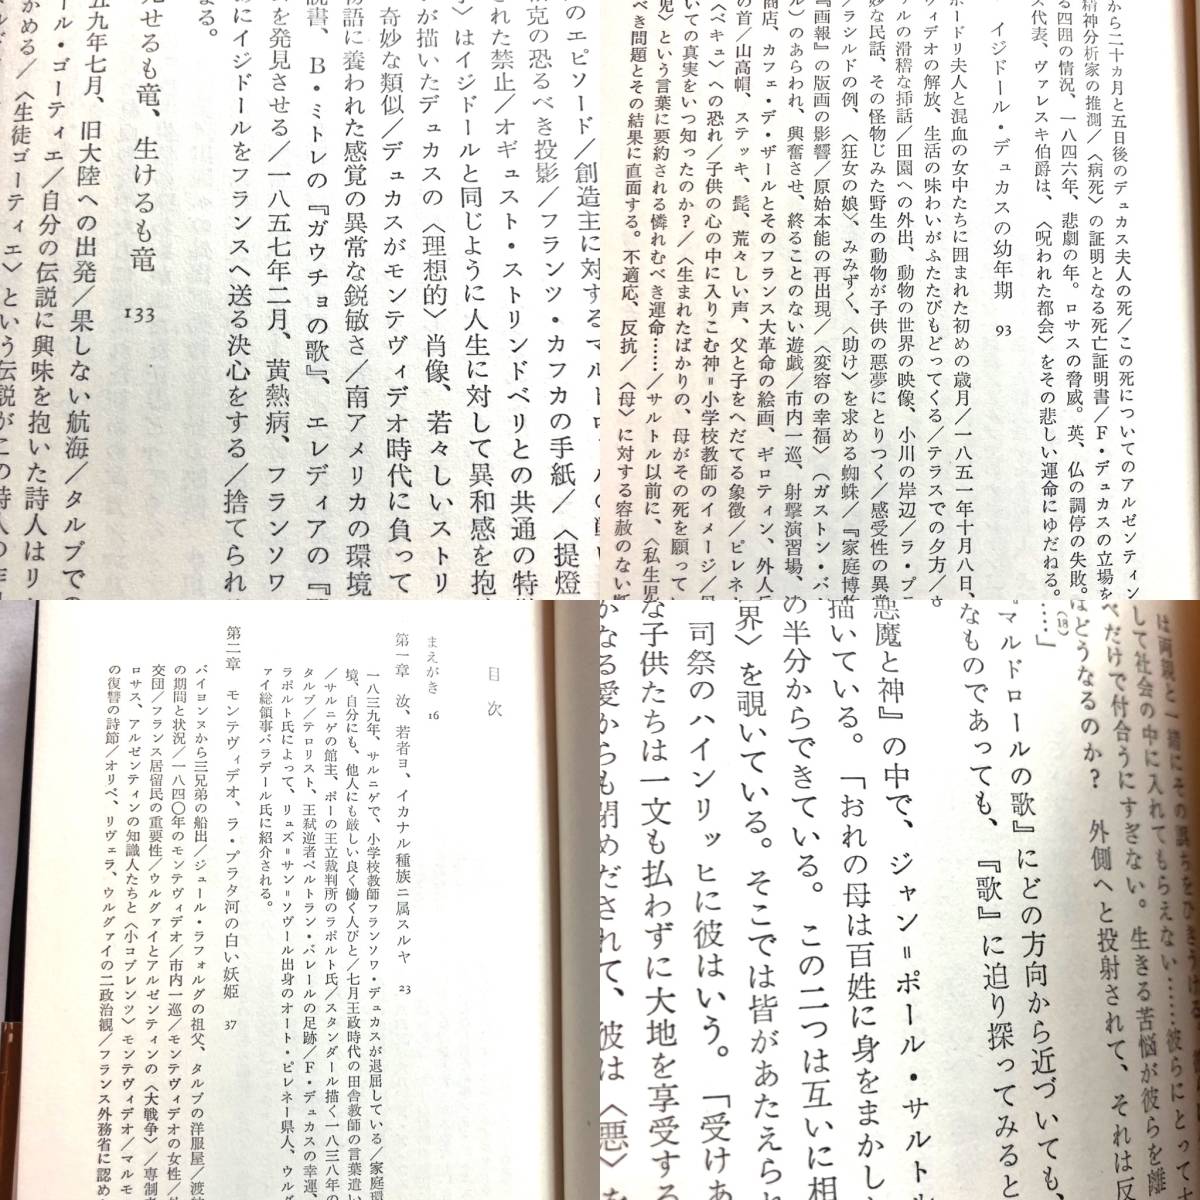 のエピソード／創造主に対するマルドロールの
克の恐るべき投影／フランツ・カフカの手紙／〈提燈
された禁止／オギュスト・ストリンドベリとの共通の特
〉はイジドールと同じように人生に対して異和感を抱
が描いたデュカスの〈理想的〉肖像、若々しいストリ
奇妙な類似／デュカスがモンテヴィデオ時代に負って
物語に養われた感覚の異常な鋭敏さ／南アメリカの環境
説書、B・ミトレの『ガウチョの歌』、エレディアの『
を発見させる／一八五七年二月、黄熱病、フランソワ
にイジドールをフランスへ送る決心をする／捨てられ
る。
せるも竜、生けるも竜 133
五九年七月、旧大陸への出発／果しない航海／タルブでの
ル・ゴーティエ／自分の伝説に興味を抱いた詩人はリ
かめる／〈生徒ゴーティエ〉という伝説がこの詩人の
から二十ヵ月と五日後のデュカス夫人の死／この死についてのアルゼンティン
精神分析家の推測／〈病死〉の証明となる死亡証明書／F・デュカスの立場を
る四囲の情況、一八四六年、悲劇の年。ロサスの脅威。英、仏の調停の失敗。
ス代表、ヴァレスキ伯爵は、〈呪われた都会〉をその悲しい運命にゆだねる。
イジドール・デュカスの幼年期 93
ボードリ夫人と混血の女中たちに囲まれた初めの歳月／一八五一年十月八日、
ヴィデオの解放、生活の味わいがふたたびもどってくる／テラスでの夕方／
アルの滑稽な挿話／田園への外出、動物の世界の映像、小川の岸辺／ラ・プ
妙な民話、その怪物じみた野生の動物が子供の悪夢にとりつく／感受性の異常
／ラシルドの例、〈狂女の娘〉、みみずく、〈助け〉を求める蜘蛛／『家庭博物
『画報』の版画の影響／原始本能の再出現／〈変容の幸福〉（ガストン・バ
ル）のあらわれ、興奮させ、終ることのない遊戯／市内一巡、射撃演習場、
商店、カフェ・デ・ザールとそのフランス大革命の絵画、ギロティン、外人
の首／山高帽、ステッキ、髭、荒々しい声、父と子をへだてる象徴／ピレネ
〈ベキュ〉への恐れ／子供の心の中に入りこむ神＝小学校教師のイメージ／
いての真実をいつ知ったのか？／〈生まれたばかりの、母がその死を願って
児〉という言葉に要約される憐れむべき運命……／サルトル以前に、〈私生児
べき問題とその結果に直面する。不適応、反抗／〈母〉に対する容赦のない
目次
まえがき 16
第一章 汝、若者ヨ、イカナル種族ニ属スルヤ 23
一八三九年、サルニゲで、小学校教師フランソワ・デュカスが退屈している／家庭環
境、自分にも、他人にも厳しい良く働く人びと／七月王政時代の田舎教師の言葉遣い
／サルニゲの館主、ポーの王立裁判所のラポルト氏／スタンダール描く一八三八年の
タルブ／テロリスト、王弑逆者ベルトラン・バレールの足跡／F・デュカスの幸運、
ラポルト氏によって、リュズ＝サン＝ソヴール出身のオート・ピレネー県人、ウルグ
アイ総領事バラデール氏に紹介される。
第二章 モンテヴィデオ、ラ・プラタ河の白い妖姫 37
バイヨンヌから三兄弟の船出／ジュール・ラフォルグの祖父、タルブの洋服屋／渡
の期間と状況／一八四〇年のモンテヴィデオ／市内一巡／モンテヴィデオの女性／
交団／フランス居留民の重要性／ウルグァイとアルゼンティンの〈大戦争〉／専制者
ロサス、アルゼンティンの知識人たちと〈小コブレンツ〉モンテヴィデオ／マルモ
の復讐の詩節／オリベ、リヴェラ、ウルグァイの二政治観／フランス外務省に認め
は両親と一緒にその誤ちをひきうける
して社会の中に入れてもらえない……彼らにとって
べだけで付合うにすぎない。生きる苦悩が彼らを離
はどうなるのか？ 外側へと投射されて、それは反
……」(18)
『マルドロールの歌』にどの方向から近づいても、
なものであっても、『歌』に迫り探ってみると
悪魔と神』の中で、ジャン＝ポール・サルトル
描いている。「おれの母は百姓に身をまかし
の半分からできている。この二つは互いに相
界〉を覗いている。そこでは皆があたえら
司祭のハインリッヒに彼はいう。「受けあ
な子供たちは一文も払わずに大地を享受する
かなる愛からも閉めだされて、彼は〈悪〉を